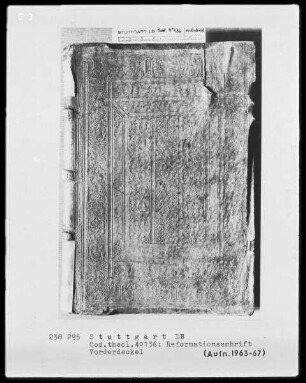 STUTTGART LB
238 295 Stuttgart LB
Cod.theol.4º136: Reformationsschrift
Vorderdeckel (Aufn.1963-67)